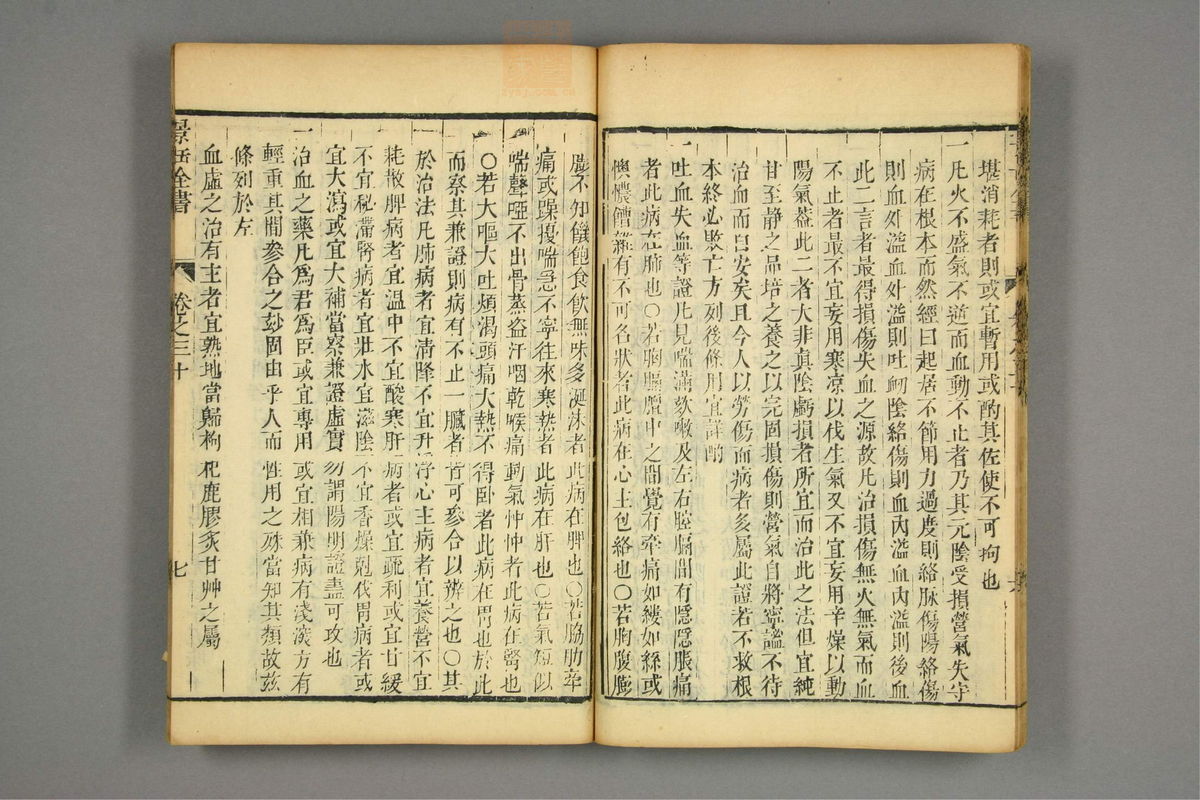 堪消耗者則或宜暫用或酌其佐使不可拘也
一凡火不盛氣不逆而血動不止者乃其元陰受損營氣失守
病在根本而然經曰起居不節用力過度則絡脉傷陽絡傷
則血外溢血外溢則吐衂陰絡傷則血內溢血內溢則後血
此二言者最得損傷失血之源故凡治損傷無火無氣而血
不止者最不宜妄用寒凉以伐生氣又不宜妄用辛燥以動
陽氣葢此二者大非真陰虧損者所宜而治此之法但宜純
甘至靜之品培之養之以完固損傷則營氣自將寧謐不待
治血而自安矣且今人以勞傷而病者多屬此證若不救根
本終必敗亡方列後條用宜詳酌
一吐血失血等證凡見喘滿欬嗽及左右腔膈間有隱隱脹痛
者此病在肺也○若胸膈膻中之間覺有牽痛如縷如絲或
懊憹嘈雜有不可名狀者此病在心主包絡也○若胸腹膨
膨不知饑飽食飲無味多涎沫者此病在脾也○若脇肋牽
痛或躁擾喘急不寧往來寒熱者此病在肝也○若氣短似
喘聲啞不出骨蒸盗汗咽乾喉痛動氣忡忡者此病在腎也
○若大嘔大吐煩渴頭痛大熱不得卧者此病在胃也於此
而察其兼證則病有不止一臟者皆可參合以辨之也○其
於治法凡肺病者宜清降不宜升浮心主病者宜養營不宜
耗散脾病者宜溫中不宜酸寒肝病者或宜疏利或宜甘緩
不宜秘滯腎病者宜壯水宜滋陰不宜香燥剋伐胃病者或
宜大瀉或宜大補當察兼證虛實勿謂陽明證盡可攻也
一治血之藥凡爲君爲臣或宜專用或宜相兼病有淺深方有
輕重其間參合之玅固由乎人而性用之殊當知其類故玆
條列於左
血虛之治有主者宜熟地當歸枸杞鹿膠炙甘艸之屬
景岳全書
卷之三十
七